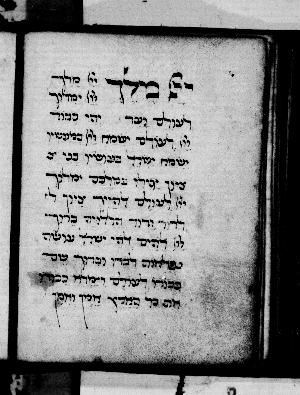 יי מלך יי מלך
יי ימלוך
לעולם ועד יהי כבוד
יי לעולם ישמח יי במעשיו
ישמח ישראל בעושיו בני צ
ציון יגילו במלכם ימלוך
יי לעולם אלהיך ציון ל
לדור ודור הללויה ברוך
יי אלהים אלהי ישראל עושה
נפלאות לבדו וברוך שם
כבודו לעולם וימלא כבודו
את כל הארץ אמן ואמן